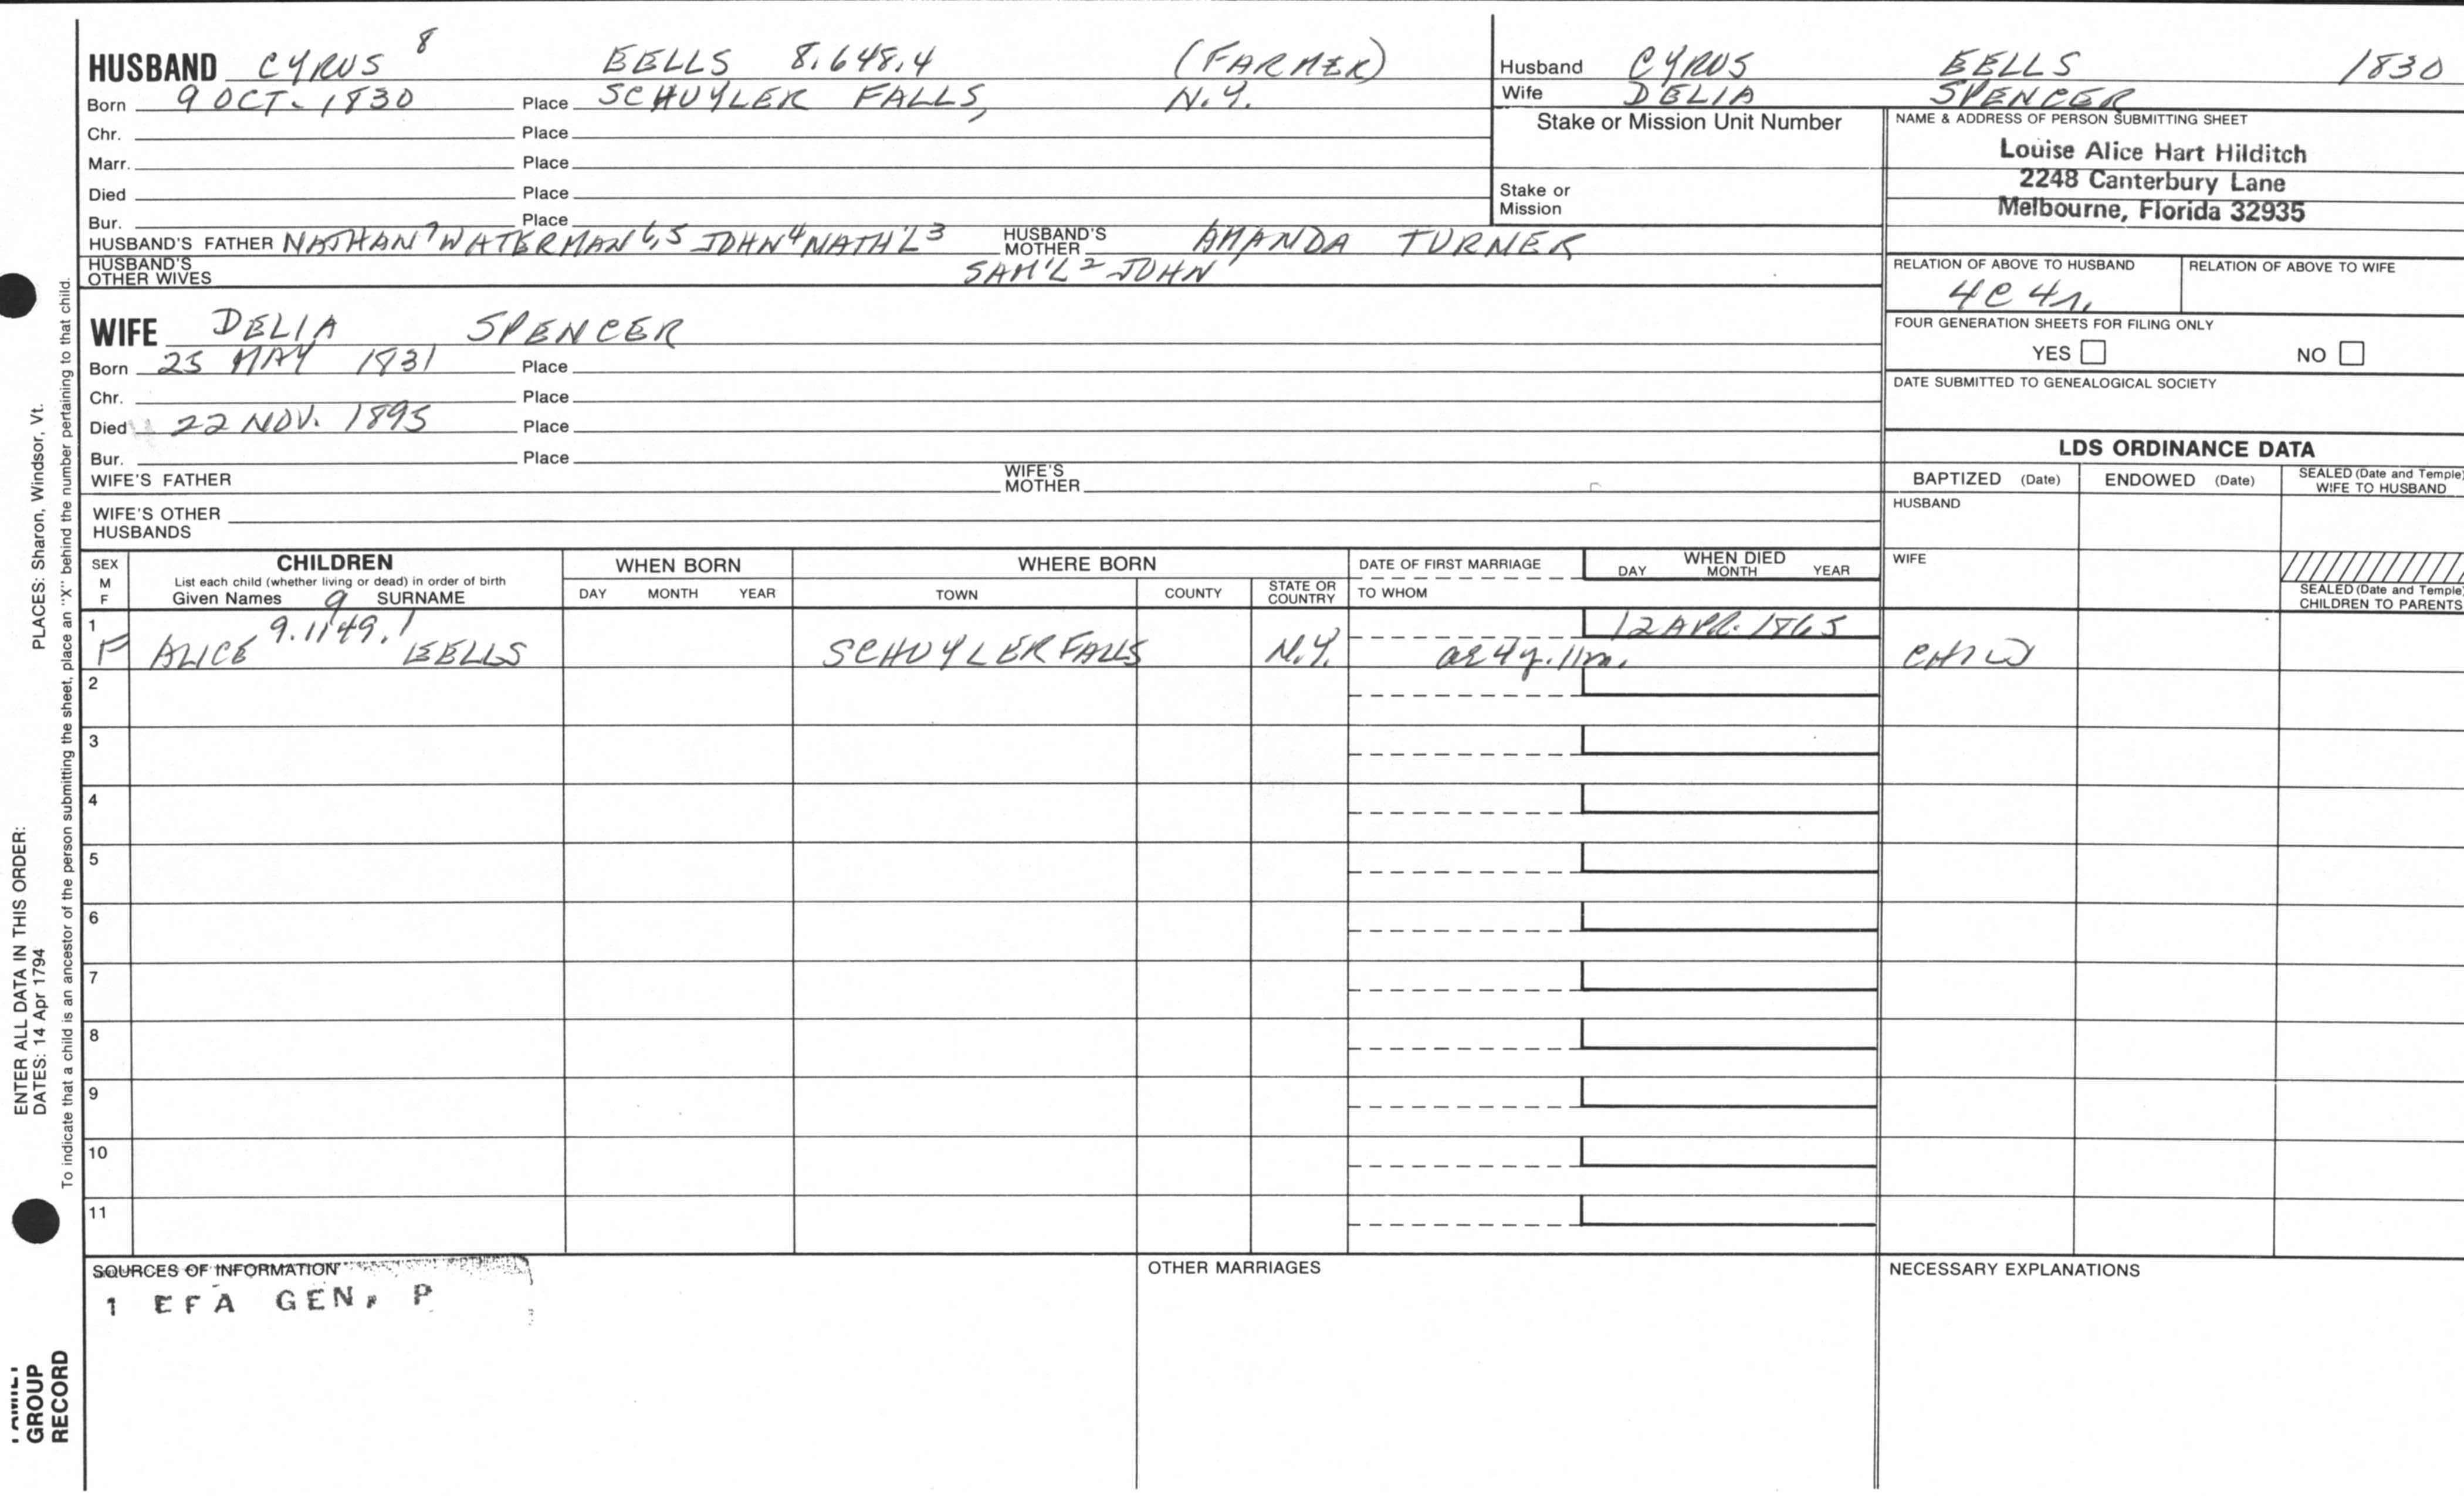 HUSBAND CYRUS 8 EELLS 8.648.4 (FARMER)
Born 9 OCT. 1830 Place SCHUYLER FALLS, N.Y.
Chr. Place
Marr. Place
Died Place
Bur. Place
HUSBAND'S FATHER NATHAN 7 WATERMAN 6,5 JOHN 4 NATH'L 3 HUSBAND'S MOTHER AMANDA TURNER
HUSBAND'S OTHER WIVES SAM'L 2 JOHN 1
Husband CYRUS EELLS 1830
Wife DELIA SPENCER
Stake or Mission Unit Number
Stake or Mission
NAME & ADDRESS OF PERSON SUBMITTING SHEET
Louise Alice Hart Hilditch
2248 Canterbury Lane
Melbourne, Florida 32935
RELATION OF ABOVE TO HUSBAND RELATION OF ABOVE TO WIFE
4C 4r.
FOUR GENERATION SHEETS FOR FILING ONLY
YES NO
DATE SUBMITTED TO GENEALOGICAL SOCIETY
WIFE DELIA SPENCER
Born 25 MAY 1831 Place
Chr. Place
Died 22 NOV. 1895 Place
Bur. Place
WIFE'S FATHER WIFE'S MOTHER
WIFE'S OTHER HUSBANDS
LDS ORDINANCE DATA
BAPTIZED (Date) ENDOWED (Date) SEALED (Date and Temple) WIFE TO HUSBAND
HUSBAND
WIFE
SEALED (Date and Temple) CHILDREN TO PARENTS
SEX M F
CHILDREN
List each child (whether living or dead) in order of birth
Given Names 9 SURNAME
WHEN BORN
DAY MONTH YEAR
WHERE BORN
TOWN COUNTY STATE OR COUNTRY
DATE OF FIRST MARRIAGE
TO WHOM
WHEN DIED
DAY MONTH YEAR
1 9.1149.1 12 APR. 1865
F ALICE EELLS SCHUYLER FALLS N.Y. ae 4y. 11m. CHILD
2
3
4
5
6
7
8
9
10
11
SOURCES OF INFORMATION
1 EFA GEN, P
OTHER MARRIAGES
NECESSARY EXPLANATIONS
ENTER ALL DATA IN THIS ORDER:
DATES: 14 Apr 1794 PLACES: Sharon, Windsor, Vt.
To indicate that a child is an ancestor of the person submitting the sheet, place an "X" behind the number pertaining to that child.
FAMILY
GROUP
RECORD